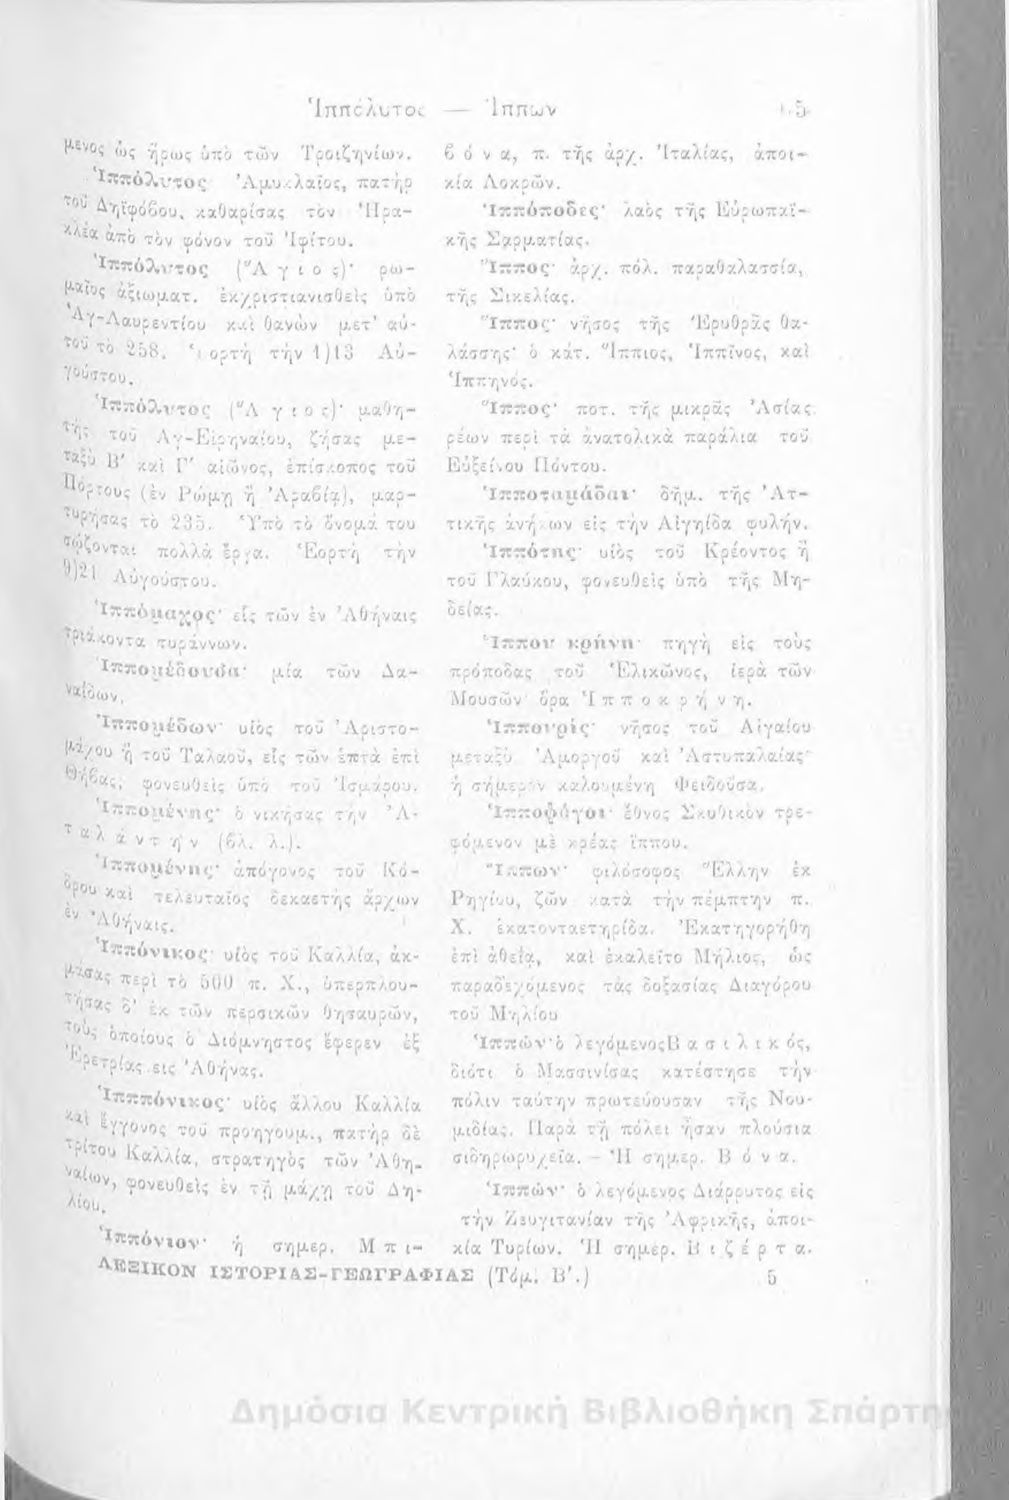 Ἱππόλυτος — Ἵππων
μενος ὡς ἥρως ὑπὸ τῶν Τροιζηνίων.
Ἱππόλυτος· Ἀμυκλαῖος, πατὴρ
τοῦ Δηϊφόβου, καθαρίσας τὸν Ἡρα-
κλέα ἀπὸ τὸν φόνον τοῦ Ἰφίτου.
Ἱππόλυτος (Ἅγιος)· ρω-
μαῖος ἀξιωματ. ἐκχριστιανισθεὶς ὑπὸ
Ἁγ-Λαυρεντίου καὶ θανὼν μετ' αὐ-
τοῦ τὸ 258. Ἑορτὴ τὴν 1)13 Αὐ-
γούστου.
Ἱππόλυτος (Ἅγιος)· μαθη-
τὴς τοῦ Ἁγ-Εἰρηναίου, ζήσας με-
ταξὺ Β' καὶ Γ' αἰῶνος, ἐπίσκοπος τοῦ
Πόρτους (ἐν Ρώμῃ ἢ Ἀραβίᾳ), μαρ-
τυρήσας τὸ 235. Ὑπὸ τὸ ὄνομά του
σῴζονται πολλὰ ἔργα. Ἑορτὴ τὴν
9)21 Αὐγούστου.
Ἱππόμαχος· εἷς τῶν ἐν Ἀθήναις
τριάκοντα τυράννων.
Ἱππομέδουσα· μία τῶν Δα-
ναΐδων.
Ἱππομέδων· υἱὸς τοῦ Ἀριστο-
μάχου ἢ τοῦ Ταλαοῦ, εἷς τῶν ἑπτὰ ἐπὶ
Θήβας, φονευθεὶς ὑπὸ τοῦ Ἰσμάρου.
Ἱππομένης· ὁ νικήσας τὴν Ἀ-
ταλάντην (βλ. λ.).
Ἱππομένης· ἀπόγονος τοῦ Κό-
δρου καὶ τελευταῖος δεκαετὴς ἄρχων
ἐν Ἀθήναις.
Ἱππόνικος· υἱὸς τοῦ Καλλία, ἀκ-
μάσας περὶ τὸ 500 π. Χ., ὑπερπλου-
τήσας δ' ἐκ τῶν περσικῶν θησαυρῶν,
τοὺς ὁποίους ὁ Διόμνηστος ἔφερεν ἐξ
Ἐρετρίας εις Ἀθήνας.
Ἱπππόνικος· υἱὸς ἄλλου Καλλία
καὶ ἔγγονος τοῦ προηγουμ., πατὴρ δὲ
τρίτου Καλλία, στρατηγὸς τῶν Ἀθη-
ναίων, φονευθεὶς ἐν τῇ μάχῃ τοῦ Δη-
λίου.
Ἱππόνιον· ἡ σημερ. Μπι-
βόνα, π. τῆς ἀρχ. Ἰταλίας, ἀποι-
κία Λοκρῶν.
Ἱππόποδες· λαὸς τῆς Εὐρωπαϊ-
κῆς Σαρματίας.
Ἵππος· ἀρχ. πόλ. παραθαλασσία,
τῆς Σικελίας.
Ἵππος· νῆσος τῆς Ἐρυθρᾶς θα-
λάσσης· ὁ κάτ. Ἵππιος, Ἱππῖνος, καὶ
Ἱππηνός.
Ἵππος· ποτ. τῆς μικρᾶς Ἀσίας
ρέων περὶ τὰ ἀνατολικὰ παράλια τοῦ
Εὐξείνου Πόντου.
Ἱπποταμάδαι· δῆμ. τῆς Ἀτ-
τικῆς ἀνήκων εἰς τὴν Αἰγηΐδα φυλήν.
Ἱππότης· υἱὸς τοῦ Κρέοντος ἢ
τοῦ Γλαύκου, φονευθεὶς ὑπὸ τῆς Μη-
δείας.
Ἵππου κρήνη· πηγὴ εἰς τοὺς
πρόποδας τοῦ Ἑλικῶνος, ἱερὰ τῶν
Μουσῶν· ὅρα Ἱπποκρήνη.
Ἱππουρίς· νῆσος τοῦ Αἰγαίου
μεταξὺ Ἀμοργοῦ καὶ Ἀστυπαλαίας·
ἡ σήμερον καλουμένη Φειδοῦσα.
Ἱπποφάγοι· ἔθνος Σκυθικὸν τρε-
φόμενον μὲ κρέας ἵππου.
Ἵππων· φιλόσοφος Ἕλλην ἐκ
Ρηγίου, ζῶν κατὰ τὴν πέμπτην π.
Χ. ἑκατονταετηρίδα. Ἐκατηγορήθη
ἐπὶ ἀθεΐᾳ, καὶ ἐκαλεῖτο Μήλιος, ὡς
παραδεχόμενος τὰς δοξασίας Διαγόρου
τοῦ Μηλίου
Ἱππών· ὁ λεγόμενος Βασιλικός,
διότι ὁ Μασσινίσας κατέστησε τὴν
πόλιν ταύτην πρωτεύουσαν τῆς Νου-
μιδίας. Παρὰ τῇ πόλει ἦσαν πλούσια
σιδηρωρυχεῖα. — Ἡ σημερ. Βόνα.
Ἱππών· ὁ λεγόμενος Διάρρυτος εἰς
τὴν Ζευγιτανίαν τῆς Ἀφρικῆς, ἀποι-
κία Τυρίων. Ἡ σημερ. Βιζέρτα.
ΛΕΞΙΚΟΝ ΙΣΤΟΡΙΑΣ-ΓΕΩΓΡΑΦΙΑΣ (Τόμ. Β'.) 5
Δημόσια Κεντρική Βιβλιοθήκη Σπάρτης